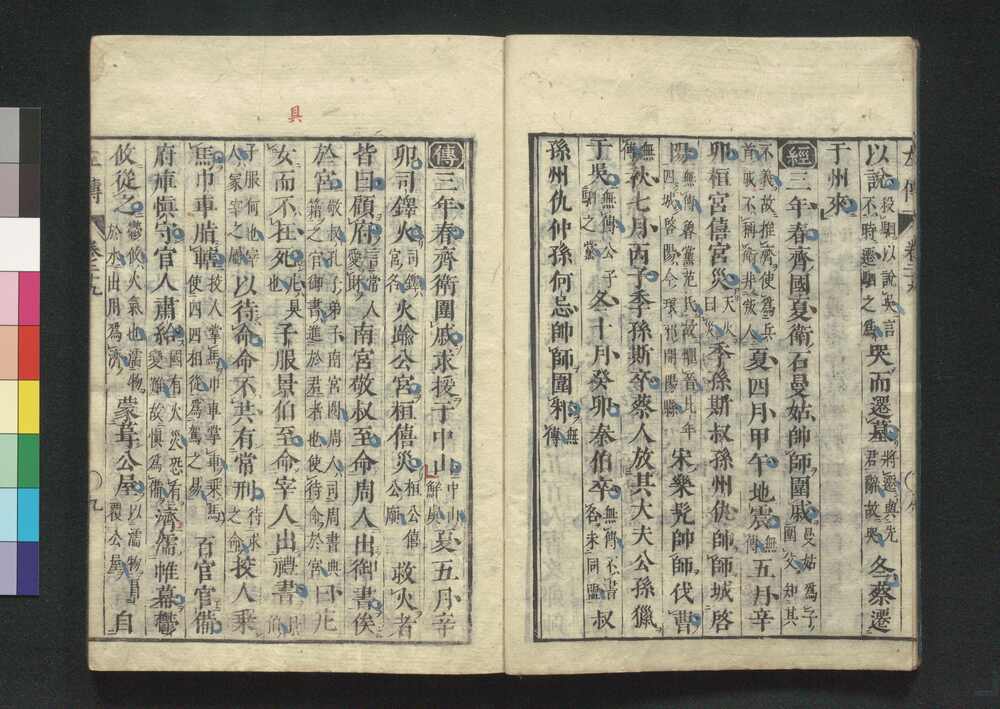 以說殺駟以說吳言不時遷駟之爲哭而遷墓將遷與先君辭故哭冬蔡遷
于州來
經三年春齊國夏衛石曼姑帥師圍戚曼姑爲子圍父知其
不義故推齊使爲兵首戚不稱衛非叛人夏四月甲午地震無傳五月辛
卯桓宮僖宮災天火曰災季孫斯叔孫州仇帥師城啓
陽無傳魯黨范氏故懼晉比年四城啓陽今琅邪開陽縣宋樂髠帥師伐曹
無傳秋七月丙子季孫斯卒蔡人放其大夫公孫獵
于吳無傳公子駟之黨冬十月癸卯秦伯卒無傳不書名未同盟叔
孫州仇仲孫何忌帥師圍邾無傳
具
傳三年春齊衛圍戚求援于中山中山鮮虞夏五月辛
卯司鐸火司鐸宮名火踰公宮桓僖災桓公僖公廟救火者
皆曰顧府言常人愛財南宮敬叔至命周人出御書俟
於宮敬叔孔子弟子南宮閱周人司周書典籍之官御書進於君者也使待命於宮曰庀
女而不在死庀具也子服景伯至命宰人出禮書景伯
子服何也宰人冢宰之屬以待命命不共有常刑待求之命校人乘
馬巾車脂轄校人掌馬巾車掌車乘馬使四四相從爲駕之易百官官備
府庫愼守官人肅給國有火災恐有變難故愼爲備濟濡帷幕鬱
攸從之鬱攸火氣也濡物於水出用爲濟蒙葺公屋以濡物冒覆公屋自
左傳
卷二十九
九